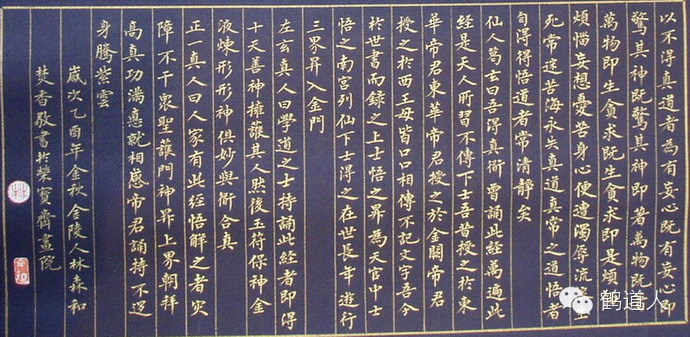 以不得真道者為有妄心既有妄心即
驚其神既驚其神即著萬物既著
萬物即生貪求既生貪求即是煩
煩惱妄想憂苦身心便遭濁辱流生
死常沉苦海永失真道真常之道悟者
自得得悟道者常清靜矣
仙人葛玄曰吾得真衜曾誦此經萬遍此
經是天人所習不傳下士吾昔授之於東
華帝君東華帝君授之於金闕帝君
授之於西王母皆口口相傳不記文字吾今
於世書而錄之上士悟之昇為天官中士
悟之南宮列仙下士得之在世長年遊行
三界昇入金門
左玄真人曰學道之士持誦此經者即得
十天善神擁護其人然後玉符保神金
液煉形形神俱妙與衜合真
正一真人曰人家有此經悟解之者灾
障不干衆聖護門神昇上界朝拜
高真功滿德就相感帝君誦持不退
身騰紫雲
歲次乙酉年金秋金陵人林森和
焚香敬書於榮寶齋畫院
鹤道人